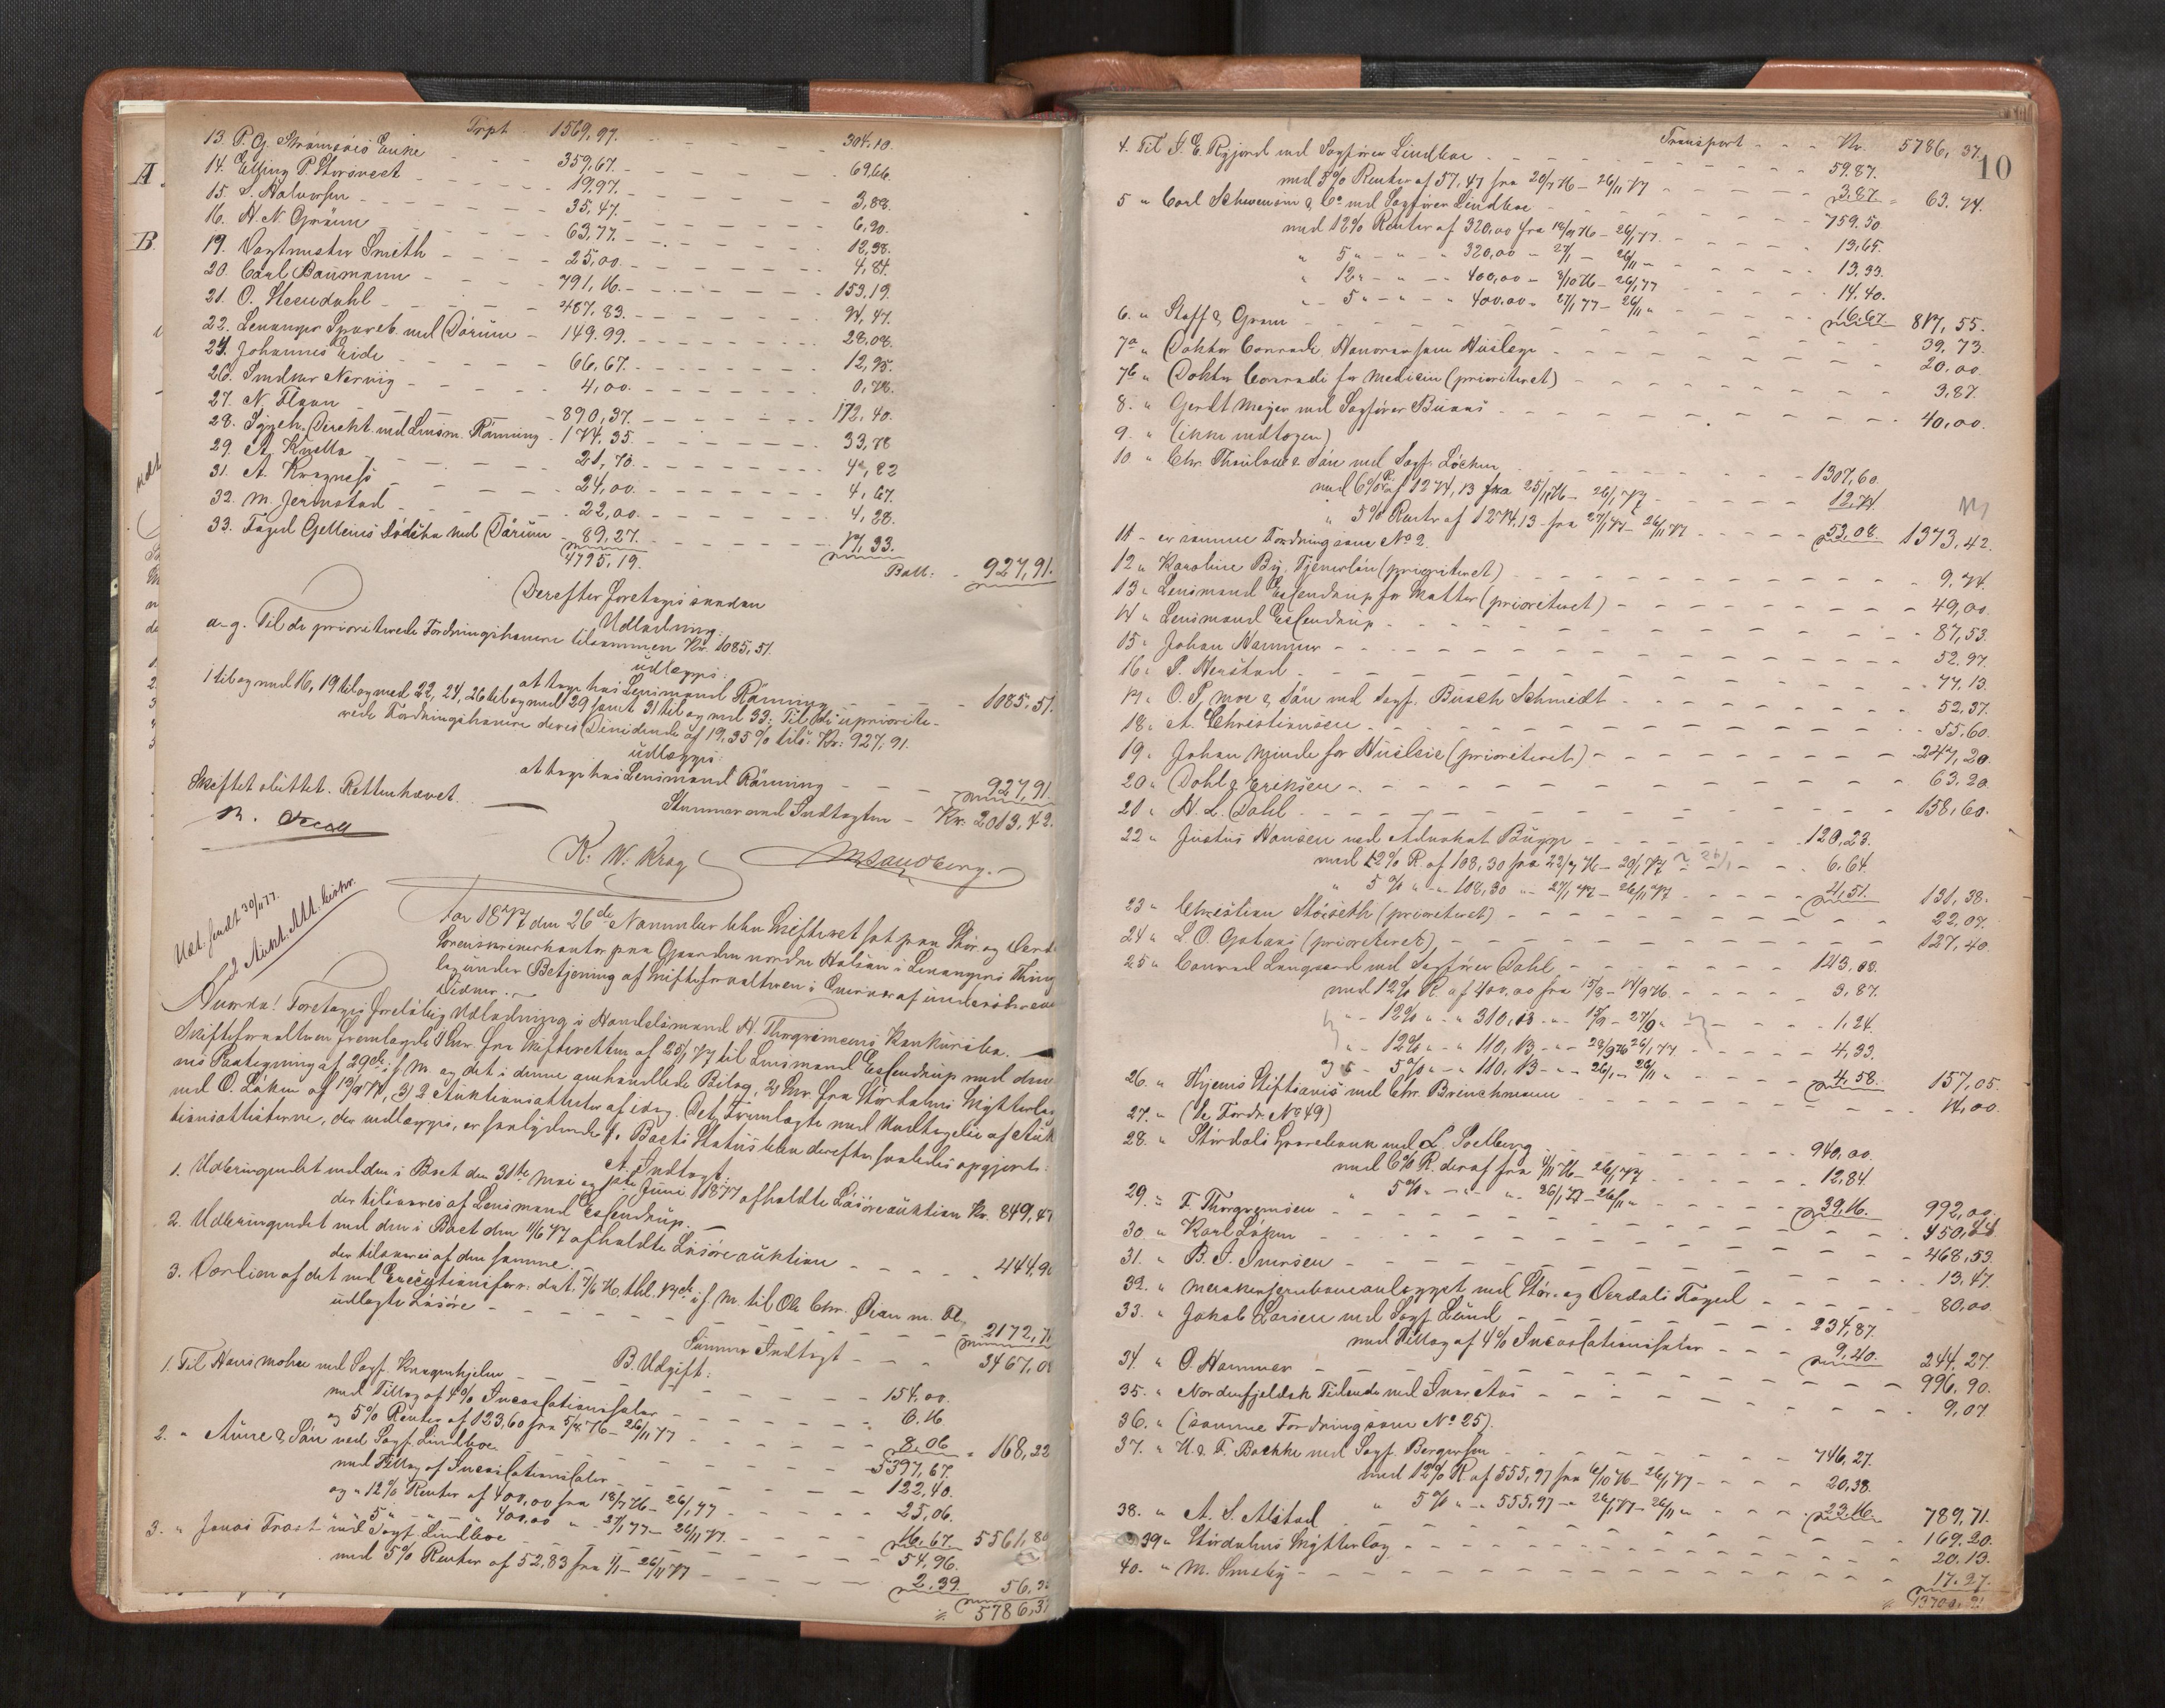 Trpt 1569,97. 304.10.
13. P. G. Strømsøes Enke 359,67. 69,66.
14. Elling P. Storsvect 19,97. 3,88.
15. S. Halvorsen 35,47. 6,90.
16. H. N. Grønn 63,77. 12,38.
19. Vagtmester Smeth 25,00. 4,84.
20. Carl Baumann 791,16. 153,19.
21. O. Steendahl 487,83. 94,47.
22. Levanger Spareb. ved Dörüm 149.99. 28,08.
24. Johannes Eide 66,67. 12,95.
26. Smedker Nervig 4,00. 0,78.
27. N. Floan 890,37. 172,40.
28. Sygeh. Direkt. ved Lensm. Rönning 174,35. 33,78
29. A. Knella 21,70. 4,22
31. A. Kragness 24,00. 4,67.
32. M. Jermstad 22,00. 4,28.
33. Foged Gjellenes Dødsbo ved Dörüm 89,27. 17,33.
4795,19. Ball: 927,91.
Derefter foretoges saadan
Udlodning.
a-g. Til de prioriterede Fordringshavere tilsammen Kr. 1085,51.
udlægges:
at tage hos Lensmand Rönning 1085,51.
1 til og med 16, 19 til og med 22, 24, 26 til og med 29 samt 31 til og med 33: Til de upriorite-
rede Fordringshavere deres Dividende af 19,35% tils. Kr: 927,91.
udlægges:
at tage hos Lensmand Rönning 927,91.
Stemmer med Indtægten Kr. 2013,42.
Skiftet sluttet. Retten hævet.
K. W. Krag. M. Sandberg.
Udt. sendt 30/11 77.
2 Aukt. Att. tilster.
Aar 1877 den 26de November blev Skifteret sat paa Stör og Værd
Sorenskriverkontor paa Gaarden nordre Halsan i Levangers Thing
lag under Betjening af Skifteforvalteren i Overvær af underskrevne
Vidner.
Hvorda! Foretoges foreløbig Udlodning i Handelsmand H. Thorgrimsens Konkursbo.
Skifteforvalteren fremlagde 1) Skr. fra Skifteretten af 25/1 77 til Lensmand Essendrup med den
nes Paategning af 29de s. M. og det i denne omhandlede Bilag, 2) Skr. fra Stördalens Skytterlag
ved O. Löken af 13/9 77, 3) 2 Auktionsattester af idag. Det Fremlagte med Undtagelse af Auk
tionsattesterne, der vedlægges, er saalydende f. Boets Status blev derefter saaledes opgjort:
A. Indtægt.
1. Udbringendet ved den i Boet den 31te Mai og 1ste Juni 1877 afholdte Lösöreauktion Kr. 849,47
der tilsvares af Lensmand Essendrup.
2. Udbringendet ved den i Boet den 11/6 77 afholdte Lösöreauktion 444,90
der tilsvares af den samme.
3. Værdien af det ved Executionsforr. dat. 7/6 76, thl. 17de s. M. til Ole Chr. Øian m. Fl.
udlagte Lösöre 2172,71
Summa Indtægt 3467,08
B. Udgift:
1. Til Hans Mohn ved Sagf. Kragenhjelm 154,00.
med Tillæg af 4% Incassationssalær 6.16
og 5% Renter af 123,60 fra 5/8 76 - 26/11 77 8,06 168,22
2. " Aune & Sön ved Sagf. Lindboe 5397,67.
med Tillæg af Incassationssalær 122,40.
og " 12% Renter af 400,00 fra 18/7 76 - 26/1 77 25,06.
" 5 " " 400,00 " 27/1 77 - 26/11 77 16,67. 5561,80
3. " Jonas Frost ved Sagf. Lindboe 54,96.
med 5% Renter af 52,83 fra 1/1 - 26/11 77 2,39 56,35
5786,37
10
Transport Kr. 5786,37.
4. Til J. E. Rygjord ved Sagförer Lindboe 59.87.
med 5% Renter af 57,47 fra 20/7 76 - 26/11 77 3,87 63.74.
5 " Carl Schwensen & Co. ved Sagförer Lindboe 759.50
med 12% Renter af 320,00 fra 18/9 76 - 26/1 77 13,65.
" 5 " " 320,00 " 27/1 - 26/11 13,33.
" 12 " " 400,00 " 8/10 76 - 26/1 77 14,40.
" 5 " " 400,00 " 27/1 77 - 26/11 16,67 817,55.
6. " Staff & Gram 39,73.
7a " Doktor Conradi Honorar som Huslæge 20,00.
7b " Doktor Conradi for Medicin (prioriteret) 3,87.
8. " Gerdt Meyer ved Sagförer Buaas 40,00.
9. " (ikke indtagen)
10. " Chr. Thaulow & Sön ved Sagf. Löchen 1307,60.
med 6% R. af 1274,13 fra 25/11 76 - 26/1 77 12,74.
" 5% Renter af 1274.13 fra 27/1 77 - 26/11 77 53,08. 1373,42.
11 - er samme Fordring som No 2.
12 " Karoline By, Tjenerlön (prioriteret) 9,74.
13 " Lensmand Essendrup for Skatter (prioriteret) 49,00.
14 " Lensmand Essendrup 87,53.
15 " Johan Hammer 52.97.
16 " P. Herstad 77,13.
17 " O. P. Moe & Sön ved Sagf. Busch Schmidt 52,37.
18 " A. Christiansen 55,60.
19 " Johan Minde for Husleie (prioriteret) 247,20.
20 " Dahl & Eriksen 63.20
21 " H. L. Dahl 158,60.
22 " Justus Hansen ved Advokat Bugge 120,23.
med 12% R. af 108,30 fra 22/7 76 - 20/1 77 6,64.
" 5% " " 108,30 " 27/1 77 - 26/11 77 4,51. 131,38.
23 " Christian Störseth (prioriteret) 22,07.
24 " L. O. Gotaas (prioriteret) 127,40.
25 " Conrad Langaard ved Sagförer Dahl 143,03.
med 12% R. af 400,00 fra 15/8 - 14/9 76 3,87.
" 12% " " 310,13 " 15/9 - 27/9 1,24.
" 12% " " 110,13 " 28/9 76 26/1 77 4,33.
" 5% " " 110,13 " 26/1 - 26/11 4,58. 157,05.
26. " Stjernes Stiftsavis ved Chr. Brinchmann 14,00.
27. " (Se Fordr. No 49)
28. " Stördals Sparebank ved L. Solberg 940,00.
med 6% R. deraf fra 4/11 76 - 26/1 77 12,84.
" 5% " " " 26/1 77 - 26/11 39,16. 992,00.
29. " F. Thorgrimsen 450,44.
30 " Karl Löken 468,53.
31. " B. J. Iversen 13,47.
32. " Merakerjernbaneanlægget ved Stör- og Værdals Foged 80,00.
33. " Jakob Larsen ved Sagf. Lund 234,87.
med Tillæg af 4% Incassationssalær 9,40. 244,27.
34. " O. Hammer 996,90.
35. " Nordenfjeldsk Tidende ved Ivar Aas 9,07.
36. " (samme Fordring som No 25).
37. " H. & F. Bachke ved Sagf. Bergersen 746,27.
med 12% R af 555,97 fra 6/10 76 - 26/1 77 20,38.
" 5% " " 555,97 " 26/1 77 - 26/11 23,16. 789,71.
38. " A. S. Alstad 169,20.
39 " Stördalens Skytterlag 20.13.
40. " M. Smeby 17,27.